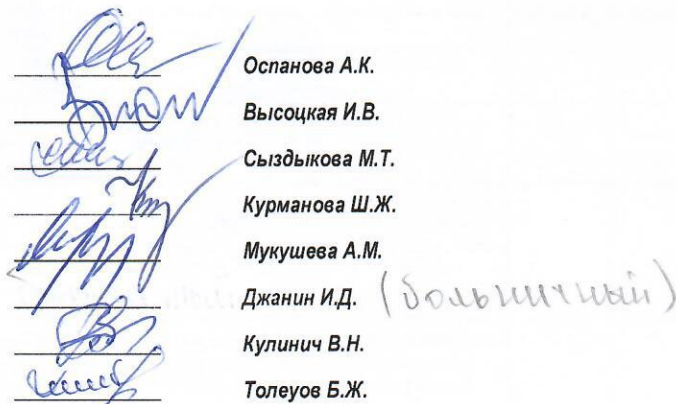 Оспанова А.К.
Высоцкая И.В.
Сыздыкова М.Т.
Курманова Ш.Ж.
Мукушева А.М.
Джанин И.Д. (больничный)
Кулинич В.Н.
Толеуов Б.Ж.